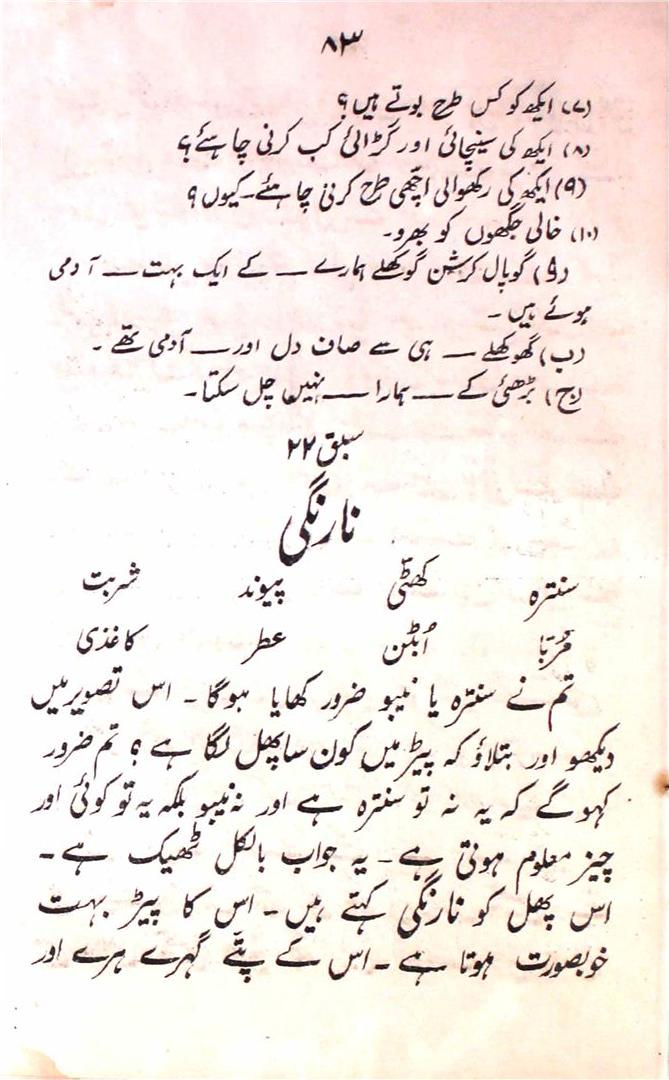 ۸۳
(۷) ایکھ کو کس طرح بوتے ہیں؟
(۸) ایکھ کی سینچائی اور گڑائی کب کرنی چاہئے؟
(۹) ایکھ کی رکھوالی اچھی طرح کرنی چاہئے۔ کیوں؟
(۱۰) خالی جگھوں کو بھرو۔
(۹) گوپال کرشن گوکھلے ہمارے — کے ایک بہت — آدمی
ہوئے ہیں۔
(ب) گھوکھلے — ہی سے صاف دل اور — آدمی تھے۔
(ج) بڑھئی کے — ہمارا — نہیں چل سکتا۔
سبق ۲۲
نارنگی
سنترہ کھٹّی پیوند شربت
مُربّا اُبٹن عطر کاغذی
تم نے سنترہ یا نیبو ضرور کھایا ہوگا۔ اس تصویر میں
دیکھو اور بتلاؤ کہ پیڑ میں کون سا پھل لگا ہے؟ تم ضرور
کہو گے کہ یہ نہ تو سنترہ ہے اور نہ نیبو بلکہ یہ تو کوئی اور
چیز معلوم ہوتی ہے۔ یہ جواب بالکل ٹھیک ہے۔
اس پھل کو نارنگی کہتے ہیں۔ اس کا پیڑ بہت
خوبصورت ہوتا ہے۔ اس کے پتّے گہرے ہرے اور